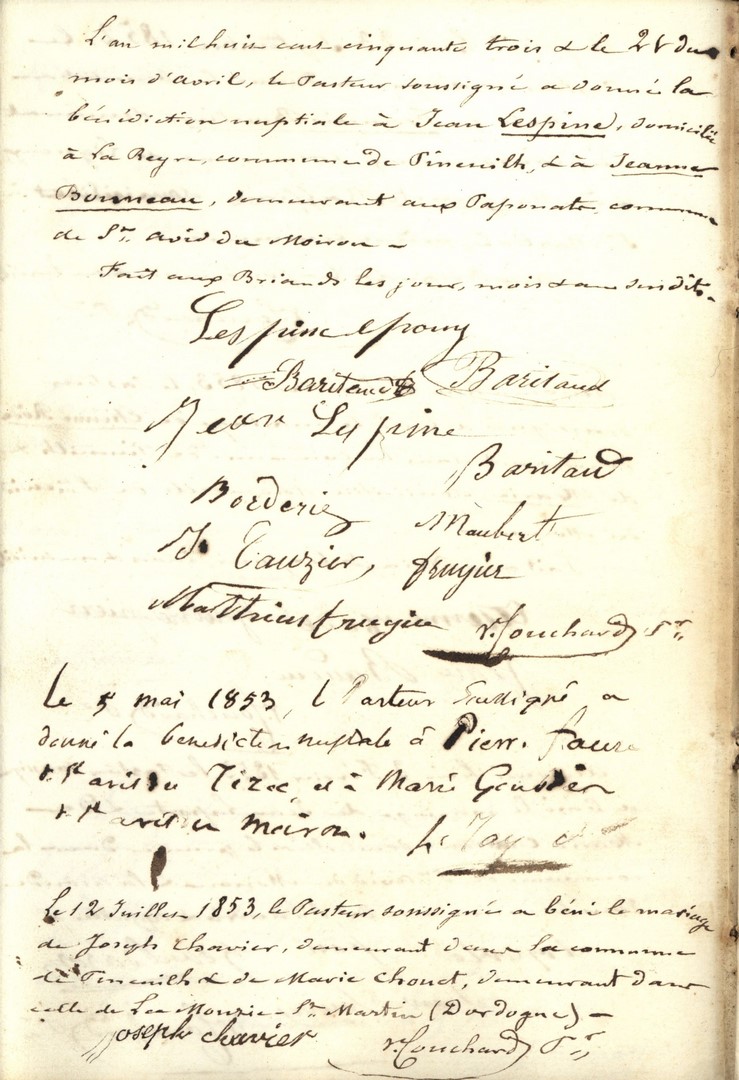 L'an mil huit cent cinquante trois & le 28 du
mois d'avril, le Pasteur soussigné a donné la
bénédiction nuptiale à Jean Lespine, domicilié
à La Reyre, commune de Pineuilh, & à Jeanne
Bonneau, demeurant aux Paponats, commune
de St. avid du Moiron -
Fait aux Briands les jour, mois & an susdits.
Lespine epoux
Baritaud Baritaud
Jean Lespine
Baritaud
Borderie Maubert
J. Tauzier, fruyier
Matthieu fruyier v. Couchard Pr.
Le 5 mai 1853, l Pasteur Soussigné a
donné la benediction nuptiale à Pierr. faure
St avit du Tizac, et à Marie
St avit du Moiron.
Le 12 Juillet 1853, le Pasteur soussigné a béni le mariage
de Joseph Chavier, demeurant dans la commune
de Pineuilh & de Marie Chouet, demeurant dans
celle de La Monzie - St. Martin (Dordogne) -
joseph chavier v. Couchard Pr.